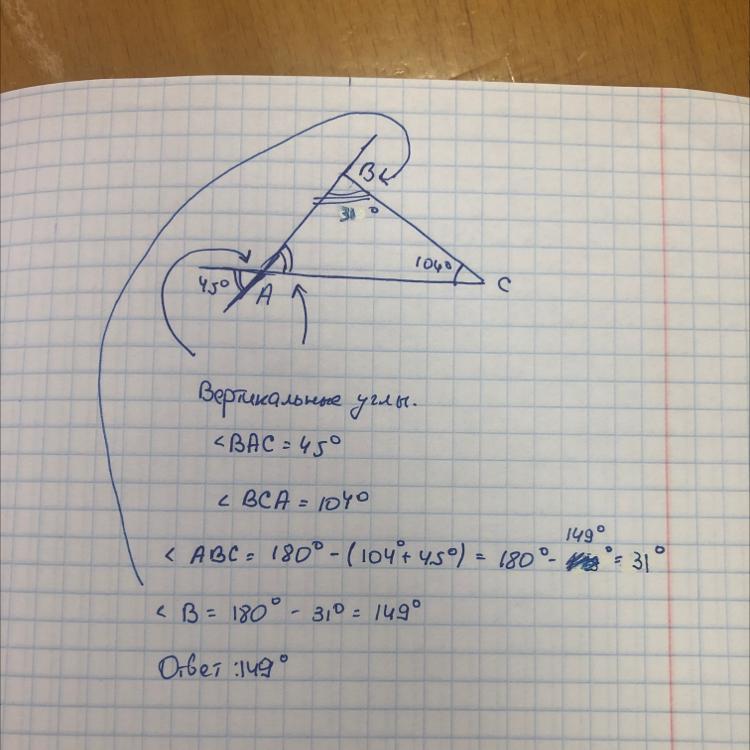 B
31°
104°
C
45°
A
Вертикальные углы.
<BAC = 45°
< BCA = 104°
149°
< ABC = 180° - (104° + 45°) = 180° - ° = 31°
< B = 180° - 31° = 149°
Ответ :149°